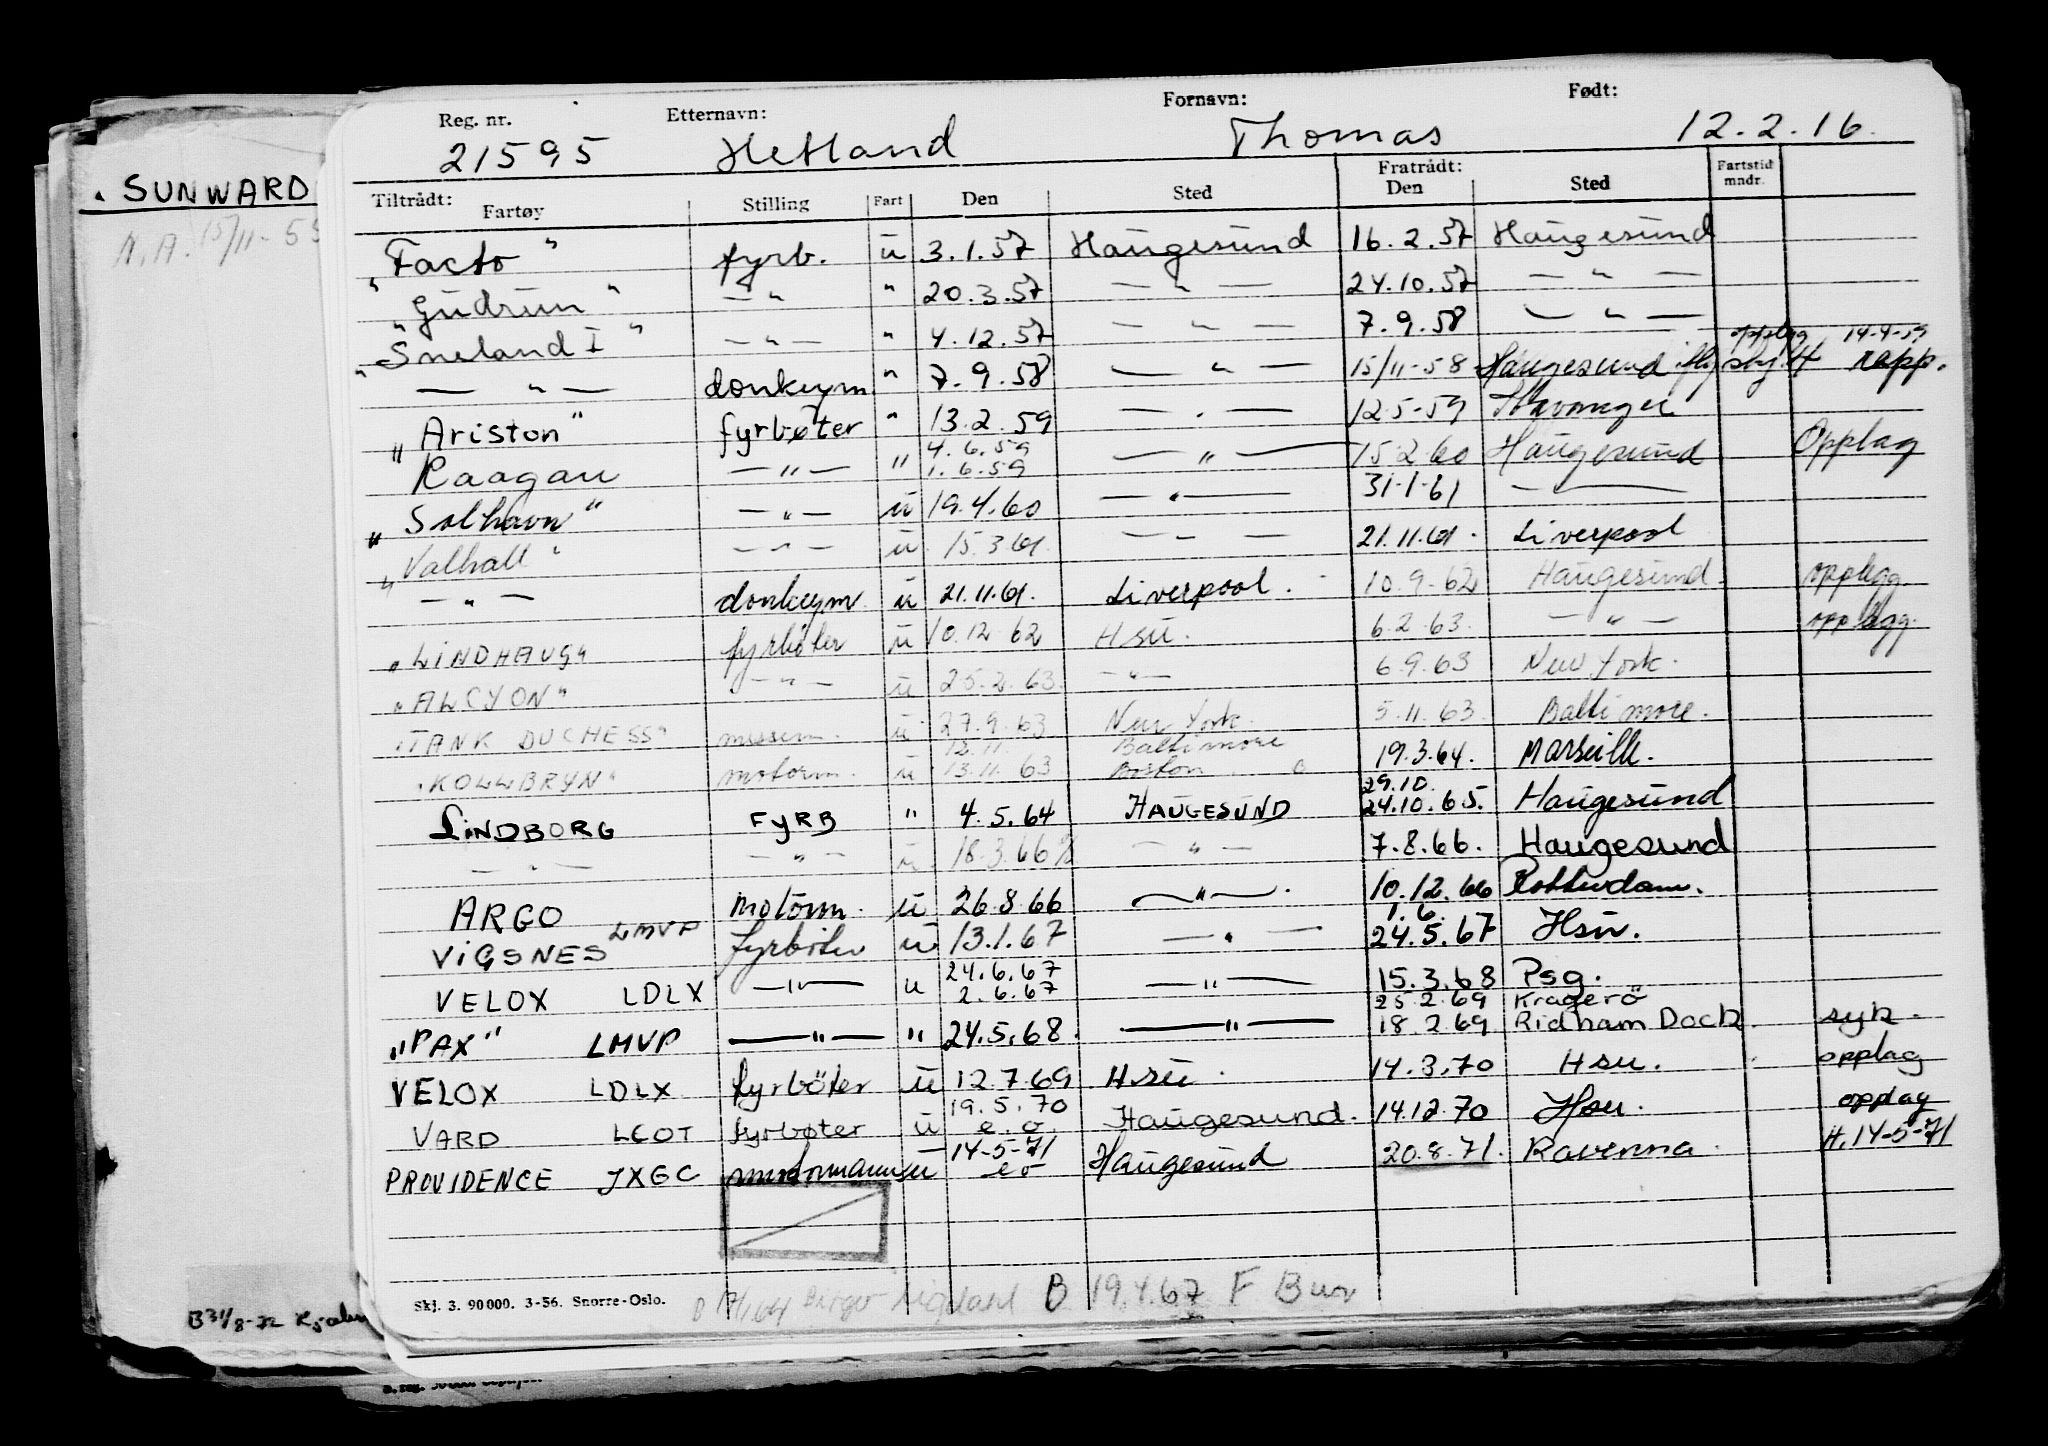 . SUNWARD
N.A. 15/11-55
Reg. nr. Etternavn: Fornavn: Født:
21595 Hetland Thomas 12.2.16.
Tiltrådt: Fratrådt:
Fartøy Stilling Fart Den Sted Den Sted Fartstid mndr.
"Facto" fyrb. u 3.1.57 Haugesund 16.2.57 Haugesund
"Gudrun" — " " 20.3.57 — " — 24.10.57 — " —
"Sneland I" — " — " 4.12.57 — " — 7.9.58 — " —
opplag 14-4-59
— " — donkeym. " 7.9.58 — " — 15/11-58 Haugesund rapp.
"Ariston" fyrbøter " 13.2.59 — " — 12.5-59 Stavanger
4.6.59
Raagan — " — " 1.6.59 — " — 15.2.60 Haugesund Opplag
"Solhavn" — " — u 19.4.60 — " — 31-1-61 —
"Valhall" — " — u 15.3.61. — " — 21.11.61. Liverpool
— " — donkeym u 21.11.61. Liverpool. 10.9.62 Haugesund. opplegg.
"LINDHAUG" fyrbøter u 10.12.62 Hsu. 6.2.63. — " — opplegg.
"ALCYON" — " — u 25.2.63. — " — 6.9.63 New York.
"TANK DUCHESS" messem. u 27.9.63 New York. 5.11.63. Baltimore.
12.11. Baltimore
"KOLLBRYN" motorm. u 13.11.63 Boston 19.3.64. Marseille.
29.10.
LINDBORG FYRB " 4.5.64 HAUGESUND 24.10.65. Haugesund
— " — — " — u 18.3.66 — " — 7.8.66. Haugesund
ARGO motorm. u 26.8.66 — " —. 10.12.66 Rotterdam.
1.6.
VIGSNES LMVP fyrbøter u 13.1.67 — " — 24.5.67 Hsu.
24.6.67
VELOX LDLX — " — u 2.6.67 — " — 15.3.68 Psg.
25.2.69 Kragerö
"PAX" LMVP — " — " 24.5.68. — " — 18.2.69 Ridham Dock. syk.
VELOX LDLX fyrböter u 12.7.69 Hsu. 14.3.70 Hsu. opplag
19.5.70
VARD LCOT fyrbøter u e.o. Haugesund. 14.12.70 Hsu. opplag
14-5-71
PROVIDENCE JXGC motormann u eo Haugesund 20.8.71. Ravenna. H. 14-5-71
Skj. 3. 90000. 3-56. Snorre-Oslo. Birger B 19.4.67 F Bur
B 31/8-72